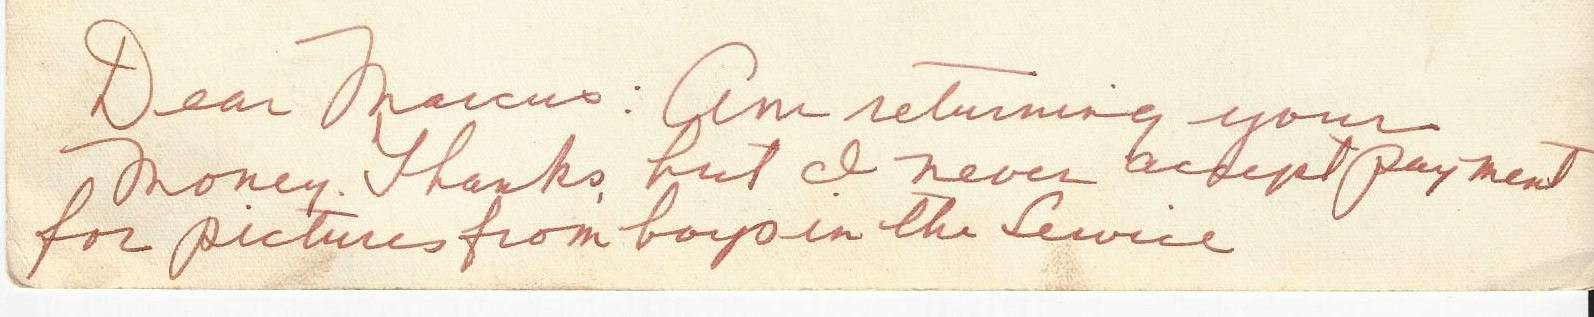 Dear Marcus: Am returning your
Money. Thanks, but I never accept payment
for pictures from boys in the Service